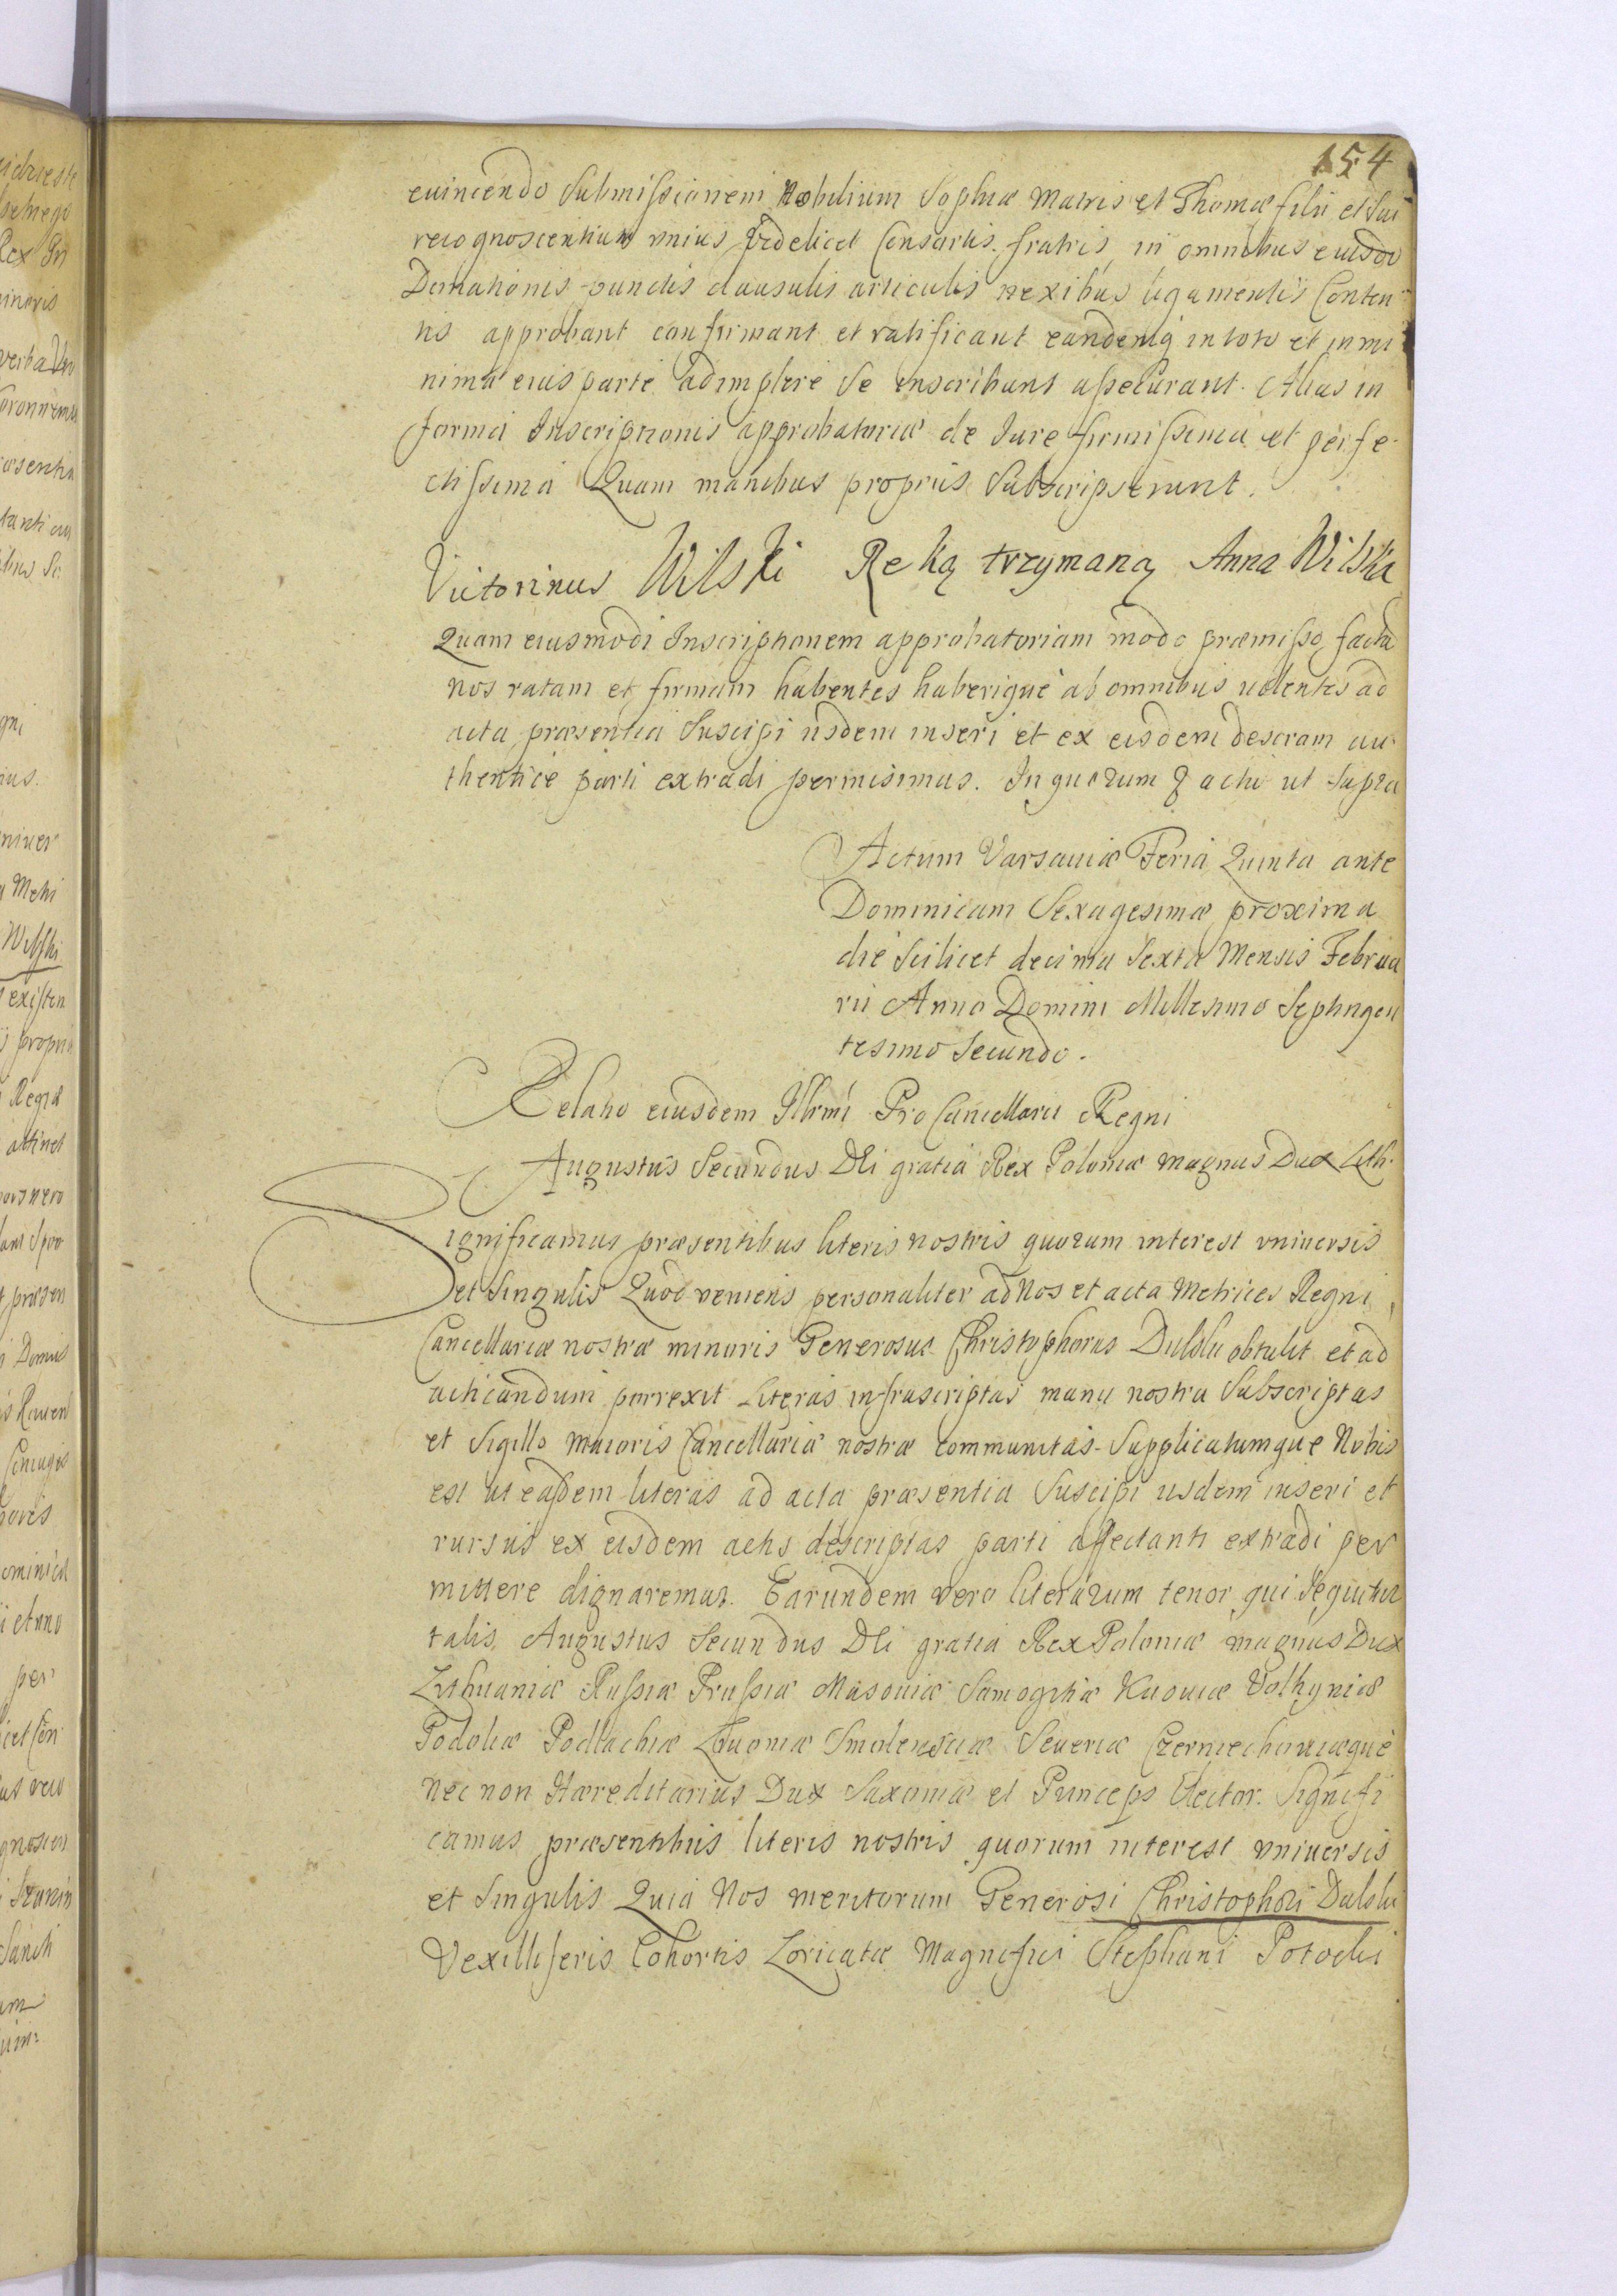 154
euincendo Submissionem Nobilium Sophiæ Matris et Thomæ filii et Sui
recognoscentium vnius videlicet Consortis fratris in omnibus eiusdo
Donationis punctis clausulis articulis nexibus ligamentis Conten
tis approbant confirmant et ratificant eandemq in toto et in mi
nima eius parte adimplere Se inscribunt assecurant. Alias in
forma Inscriptionis approbatoriæ de Iure firmissima et perfe
ctissima Quam manibus proprijs Subscripserunt.
Victorinus Wilski Reką trzymaną Anna Wilska
Quam eiusmodi Inscriptionem approbatoriam modo præmisso facta
nos ratam et firmam habentes haberique ab omnibus uolentes ad
acta præsentia Suscipi iisdem inseri et ex eisdem descram au
thentice parti extradi permisimus. In quorum & actu ut supra
Actum Varsauiæ Feria Quinta ante
Dominicam Sexagesimæ proxima
die Scilicet decima Sexta Mensis Februa
rii Anno Domini Millesimo Septingen
tesimo Secundo.
Relatio eiusdem Illrmi Pro Cancellarii Regni
Augustus Secundus Dei gratia Rex Poloniæ magnus Dux Lith.
Significamus præsentibus literis nostris quorum interest vniuersis
et Singulis Quod veniens personaliter ad Nos et acta Metrices Regni
Cancellariæ nostræ minoris Generosus Christophorus Dulski obtulit et ad
acticandum porrexit Literas infrascriptas manu nostra Subscriptas
et Sigillo maioris Cancellariæ nostræ communitas Supplicatumque Nobis
est ut easdem literas ad acta præsentia Suscipi iisdem inseri et
rursus ex eisdem actis descriptas parti affectanti extradi per
mittere dignaremur. Earundem vero literarum tenor qui Sequitur
talis. Augustus Secundus Dei gratia Rex Poloniæ magnus Dux
Lithuaniæ Russiæ Prussiæ Masouiæ Samogitiæ Kiiouiæ Volhyniæ
Podoliæ Podlachiæ Liuoniæ Smolensciæ Seueriæ Czerniechouiæque
nec non Hæreditarius Dux Saxoniæ et Princeps Elector. Signifi
camus præsentibus literis nostris quorum interest vniuersis
et Singulis Quia Nos meritorum Generosi Christophori Dulski
Vexilliferis Cohortis Loricatæ Magnifici Stephani Potocki